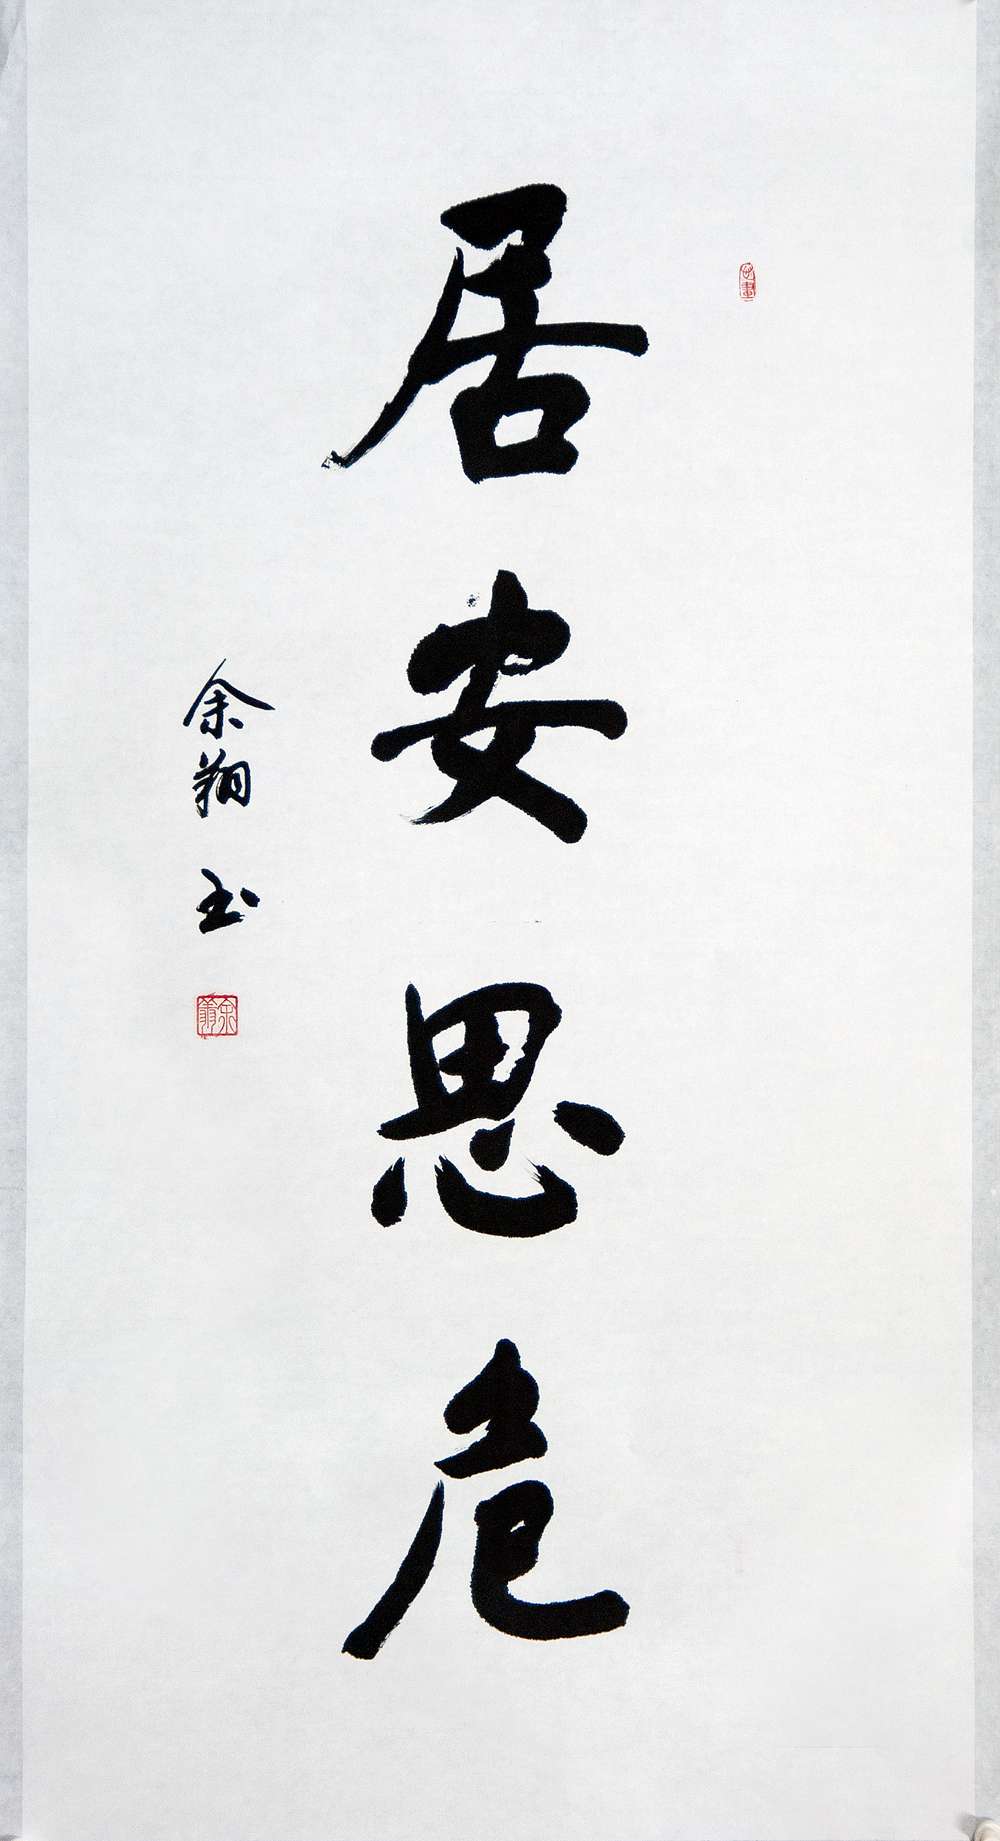 居安思危
余翔